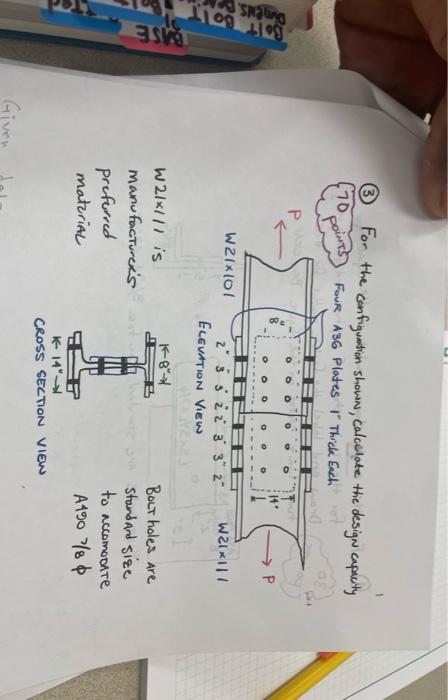 ③ For the configuration shown, calculate the design capacity
70 points
FOUR A36 Plates 1" Thick Each
P
P
8"
14"
W21x101
W21x111
2" 3" 3" 2" 2" 3" 3" 2"
ELEVATION VIEW
W21x111 is
manufacturer's
preferred
material
8"
14"
CROSS SECTION VIEW
BOLT holes ARE
Standard size
to accomodate
A490 7/8 ϕ
Given data
BASE
BOLT
BOLT